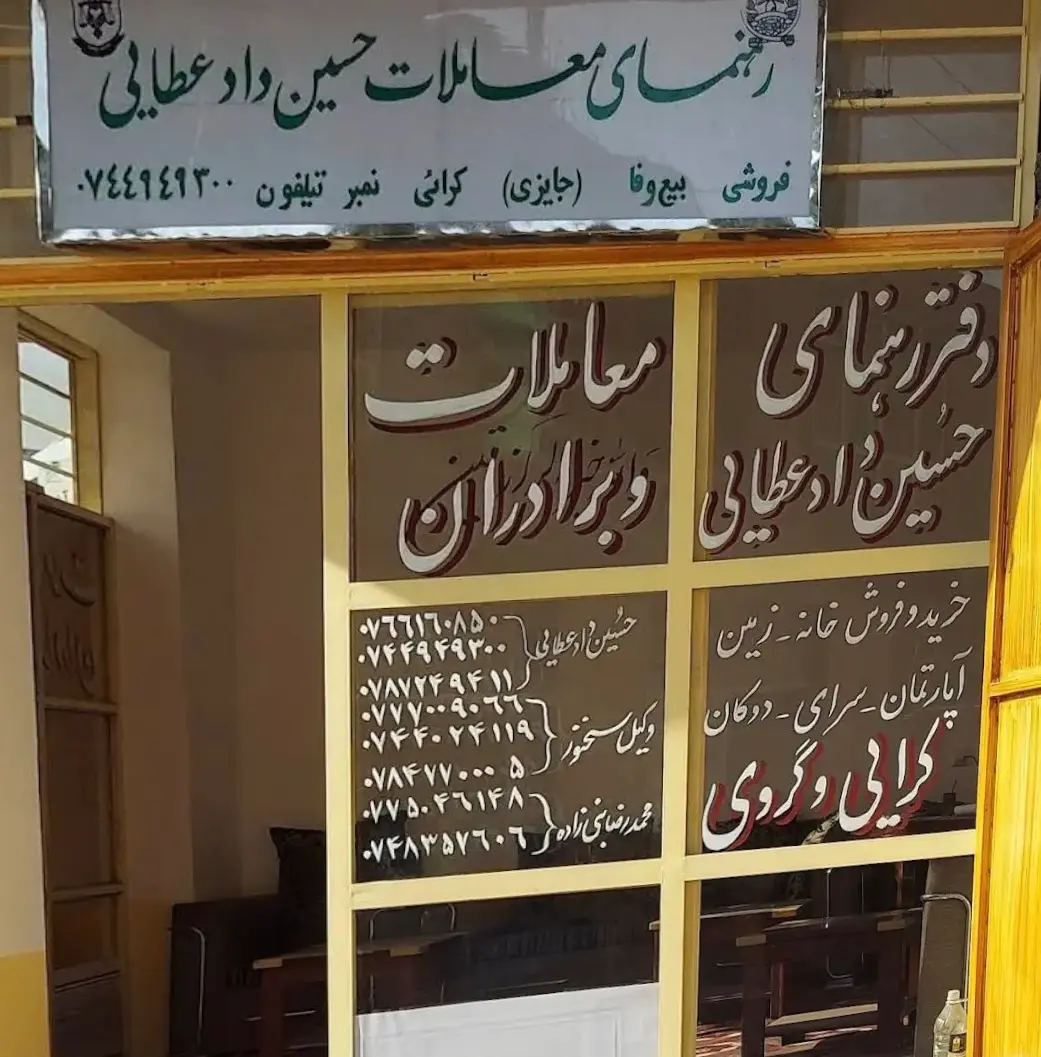 رهنمای معاملات حسین داد عطایی
فروشی بیع وفا (جایزی) کرائی نمبر تیلفون ۰۷۴۴۹۴۹۳۰۰
دفتر رهنمای معاملات
حسین داد عطایی و برادران
خرید و فروش خانه - زمین
آپارتمان - سرای - دوکان
کرایی و گروی
حسین داد عطایی
۰۷۶۶۱۶۰۸۵۰
۰۷۴۴۹۴۹۳۰۰
۰۷۸۷۲۴۹۴۱۱
وکیل سخنور
۰۷۷۷۰۰۹۰۶۶
۰۷۴۴۰۲۴۱۱۹
۰۷۸۴۷۷۰۰۰۵
محمد رضا بنی زاده
۰۷۷۵۰۴۶۱۴۸
۰۷۴۸۳۵۷۶۰۶